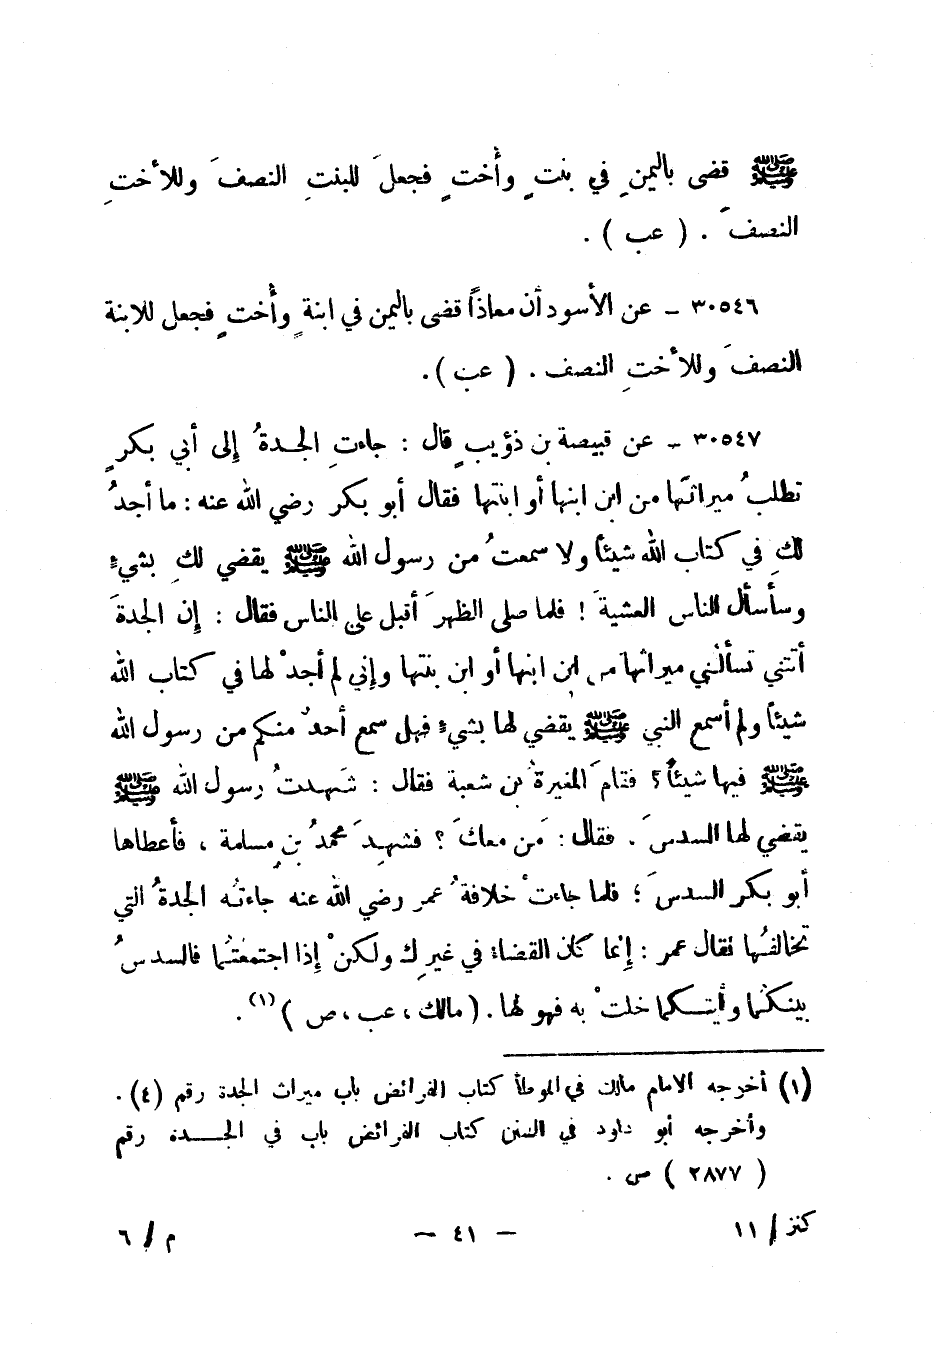 ﷺ قضى باليمنِ في بنتٍ وأُختٍ فجعلَ للبنتِ النصفَ وللأختِ
النصفَ . ( عب ) .
٣٠٥٤٦ ـ عن الأسود أن معاذاً قضى باليمن في ابنةٍ وأُختٍ فجعل للابنة
النصفَ وللأختِ النصف . ( عب ) .
٣٠٥٤٧ ـ عن قبيصة بن ذؤيبٍ قال : جاءتِ الجدةُ إلى أبي بكرٍ
تطلبُ ميراثَها من ابن ابنها أو ابنتها فقال أبو بكر رضي الله عنه : ما أجدُ
لكِ في كتاب الله شيئاً ولا سمعتُ من رسول الله ﷺ يقضي لكِ بشيءٍ
وسأسأل الناس العشيةَ ! فلما صلى الظهرَ أقبل على الناس فقال : إن الجدةَ
أتتني تسألُني ميراثَها من ابن ابنها أو ابن بنتها وإني لم أجدْ لها في كتاب الله
شيئاً ولم أسمع النبي ﷺ يقضي لها بشيءٍ فهل سمع أحدٌ منكم من رسول الله
ﷺ فيها شيئاً ؟ فقام المغيرةُ بن شعبة فقال : شهدتُ رسول الله ﷺ
يقضي لها السدسَ . فقال : مَن معكَ ؟ فشهدَ محمدُ بن مسلمة ، فأعطاها
أبو بكر السدسَ ؛ فلما جاءتْ خلافةُ عمر رضي الله عنه جاءتْه الجدةُ التي
تخالفُها فقال عمر : إنما كان القضاء في غيركِ ولكنْ إذا اجتمعتُما فالسدسُ
بينكُما وأيتُكما خلتْ به فهو لها . ( مالك ، عب ، ص )(١) .
(١) أخرجه الامام مالك في الموطأ كتاب الفرائض باب ميراث الجدة رقم (٤) .
وأخرجه أبو داود في السنن كتاب الفرائض باب في الجدة رقم
( ٢٨٧٧ ) ص .
كنز / ١١ — ٤١ — م / ٦